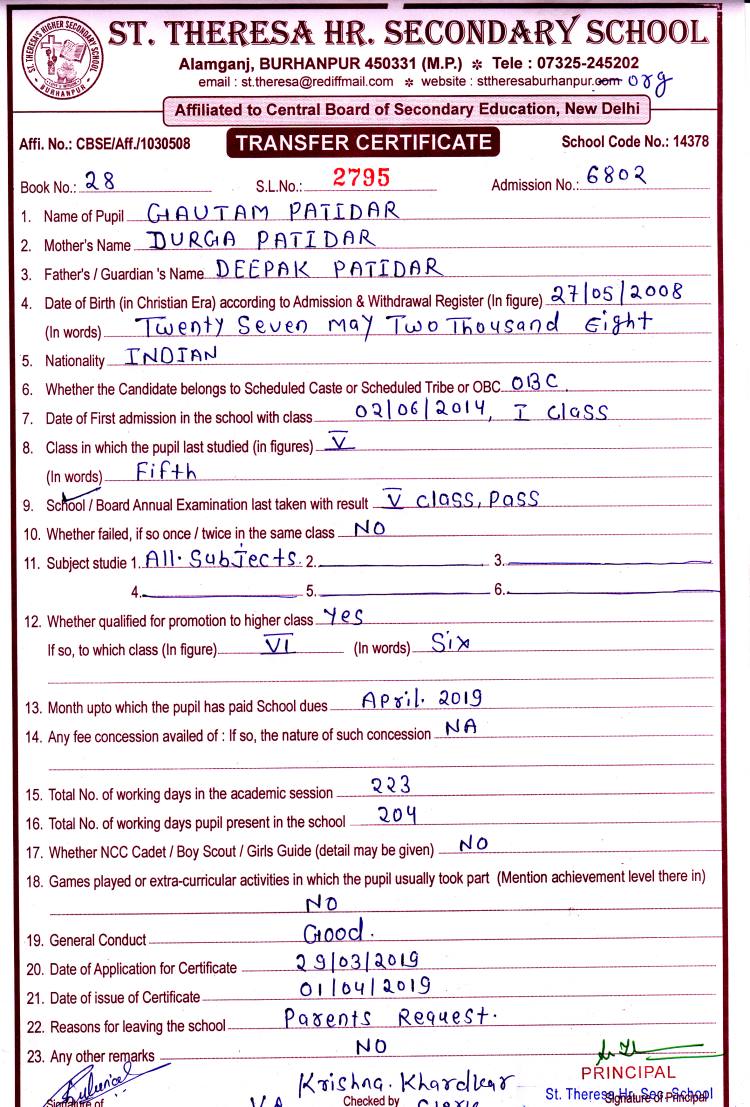 ST. THERESA HR. SECONDARY SCHOOL
ST. THERESA'S HIGHER SECONDARY SCHOOL BURHANPUR
Alamganj, BURHANPUR 450331 (M.P.) * Tele : 07325-245202
email : st.theresa@rediffmail.com * website : sttheresaburhanpur.com org
Affiliated to Central Board of Secondary Education, New Delhi
Affi. No.: CBSE/Aff./1030508 TRANSFER CERTIFICATE School Code No.: 14378
Book No.: 28 S.L.No.: 2795 Admission No.: 6802
1. Name of Pupil GAUTAM PATIDAR
2. Mother's Name DURGA PATIDAR
3. Father's / Guardian 's Name DEEPAK PATIDAR
4. Date of Birth (in Christian Era) according to Admission & Withdrawal Register (In figure) 27/05/2008
(In words) Twenty Seven may Two Thousand Eight
5. Nationality INDIAN
6. Whether the Candidate belongs to Scheduled Caste or Scheduled Tribe or OBC OBC
7. Date of First admission in the school with class 02/06/2014, I class
8. Class in which the pupil last studied (in figures) V
(In words) Fifth
9. School / Board Annual Examination last taken with result V class, Pass
10. Whether failed, if so once / twice in the same class NO
11. Subject studie 1. All. Subjects. 2. 3.
4. 5. 6.
12. Whether qualified for promotion to higher class Yes
If so, to which class (In figure) VI (In words) Six
13. Month upto which the pupil has paid School dues April. 2019
14. Any fee concession availed of : If so, the nature of such concession NA
15. Total No. of working days in the academic session 223
16. Total No. of working days pupil present in the school 204
17. Whether NCC Cadet / Boy Scout / Girls Guide (detail may be given) NO
18. Games played or extra-curricular activities in which the pupil usually took part (Mention achievement level there in)
NO
19. General Conduct Good.
20. Date of Application for Certificate 29/03/2019
21. Date of issue of Certificate 01/04/2019
22. Reasons for leaving the school Parents Request.
23. Any other remarks NO
PRINCIPAL
Krishna. Khardkar
St. Theresa Hr. Sec. School
Signature of Checked by Clerk Signature of Principal